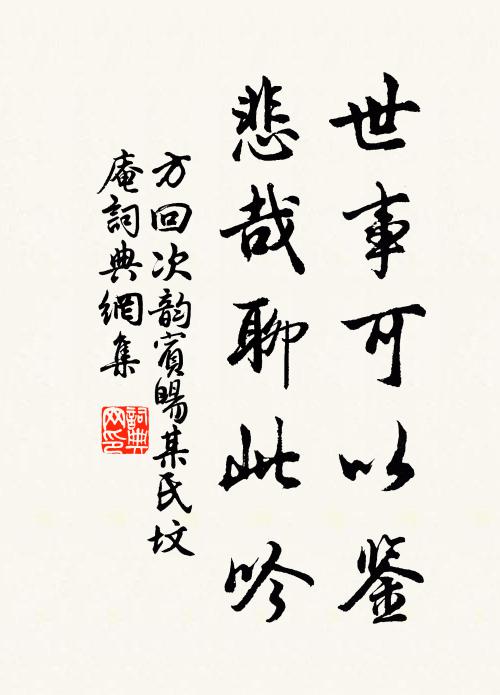 世事可以鉴
悲哉聊此吟
方回次韵宾旸某氏坟
庵詞典網集
詞典网印